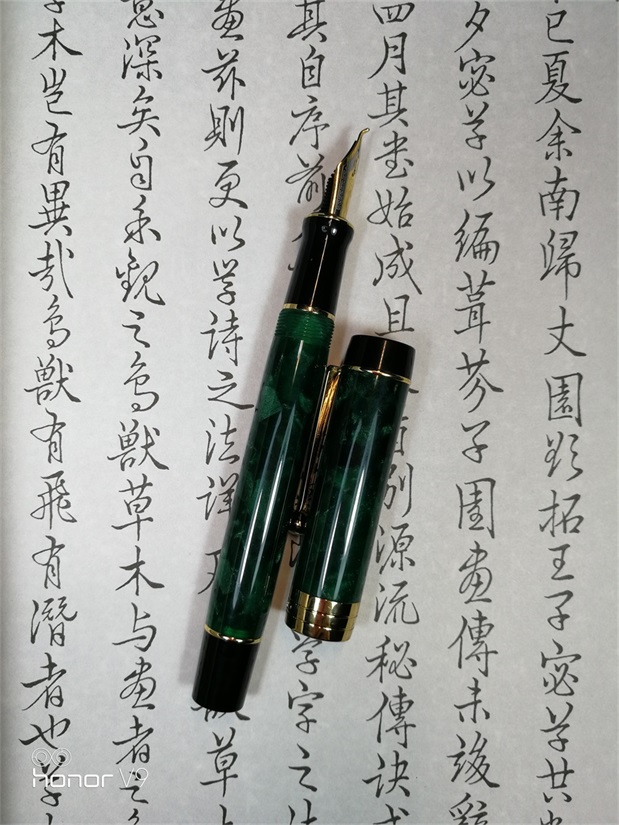 巳夏余南歸丈園欲拓王子宓草共
夕宓草以編葺芥子園畫傳未竣
四月其書始成且 別源流秘傳訣
其自序前 学字之
畫茲則更以学詩之法詳 草
深矣自 觀之鳥獸草木与畫者之
木豈有異哉鳥獸有飛有潛者也草
honor V9